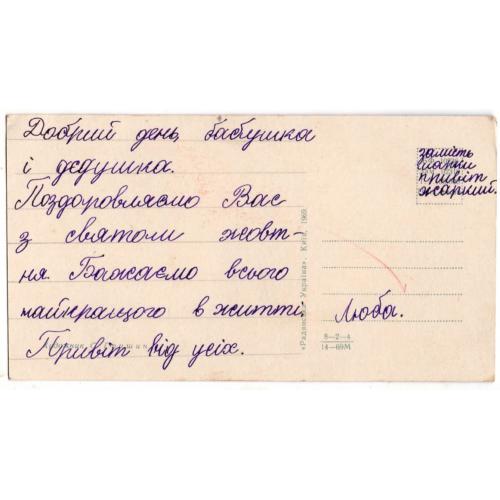 Добрий день, бабушка
і дєдушка.
Поздоровляємо Вас
з святом жовт-
ня. Бажаємо всього
найкращого в житті.
Привіт від усіх.
замість
марки
привіт
жаркий.
Люба.
«Радянська Україна». Київ, 1969
8—2—4
14—69М